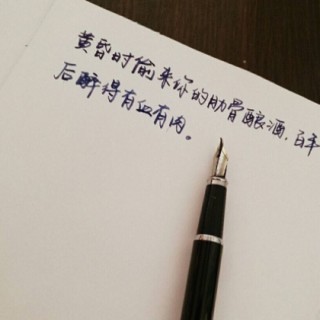 黄昏时偷来你的肋骨酿酒，百年
后醉得有血有肉。